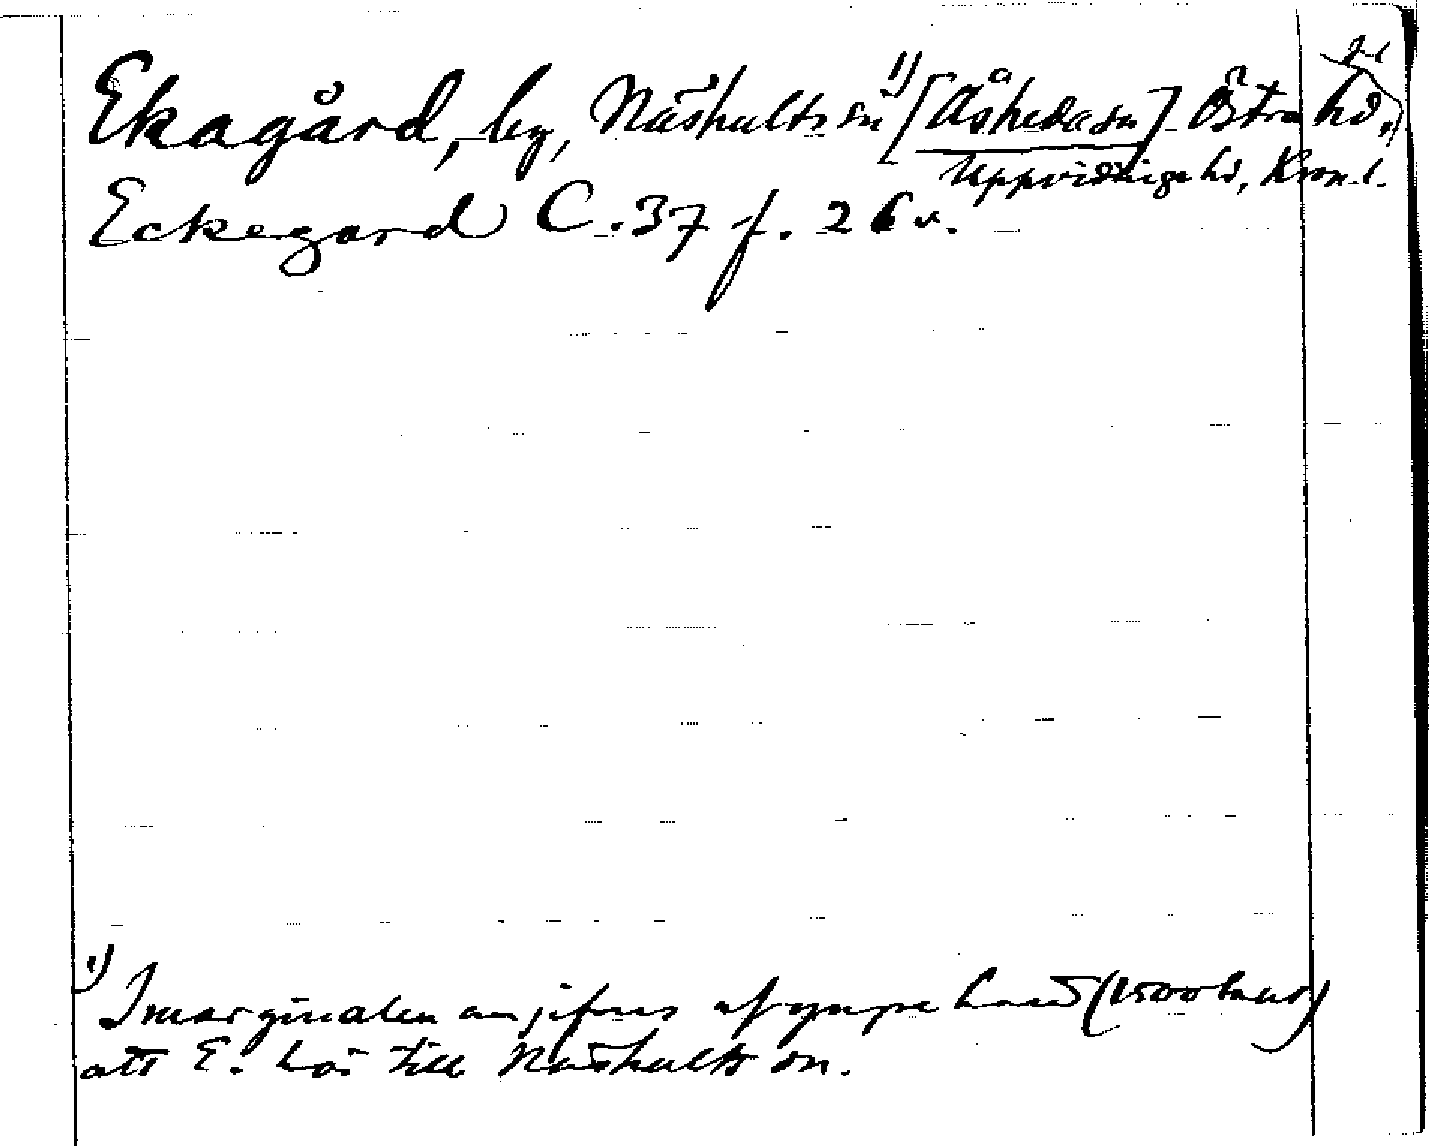 Ekagård, by, Näshults sn 1) [Åsheda sn] Östra hd,
Uppvidinge hd, Kron. l.
Eckegard C. 37 f. 26 v.
1) I marginalen angifves af yngre hand (1500 talet)
att E. hör till Näshults sn.